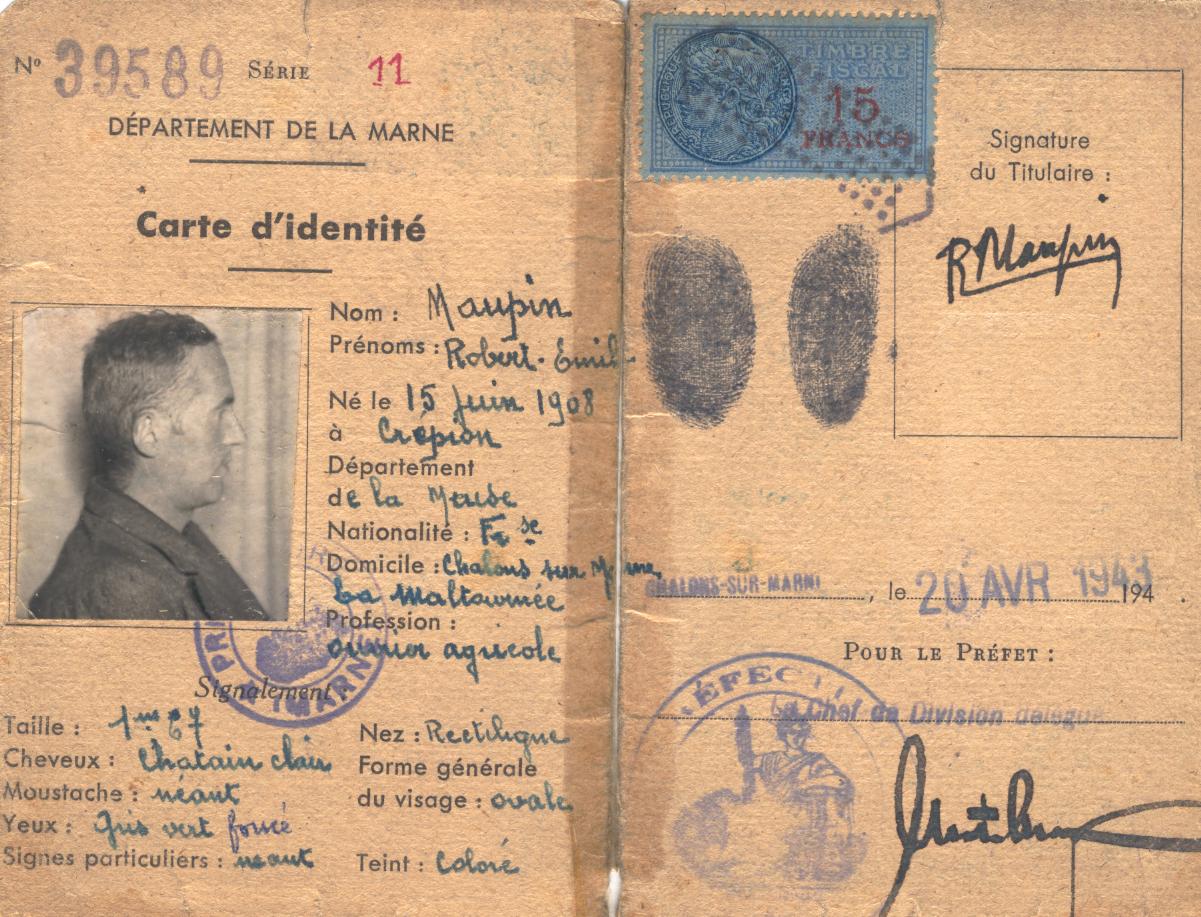 Nº 39589 SÉRIE 11
DÉPARTEMENT DE LA MARNE
Carte d'identité
Nom : Maupin
Prénoms : Robert-Emile
Né le 15 Juin 1908
à Crépion
Département
de la Meuse
Nationalité : Fse
Domicile : Chalons sur Marne
La Maltournée
Profession :
ouvrier agricole
Signalement
Taille : 1m67
Cheveux : Chatain clair
Moustache : néant
Yeux : Gris vert foncé
Signes particuliérs : néant
Nez : Rectiligne
Forme générale
du visage : ovale
Teint : Coloré
MARNE
TIMBRE
FISCAL
15
FRANCS
Signature
du Titulaire :
R Maupin
CHALONS-SUR-MARNE, le 20 AVR 1943 194 .
POUR LE PRÉFET :
Le Chef de Division délégué